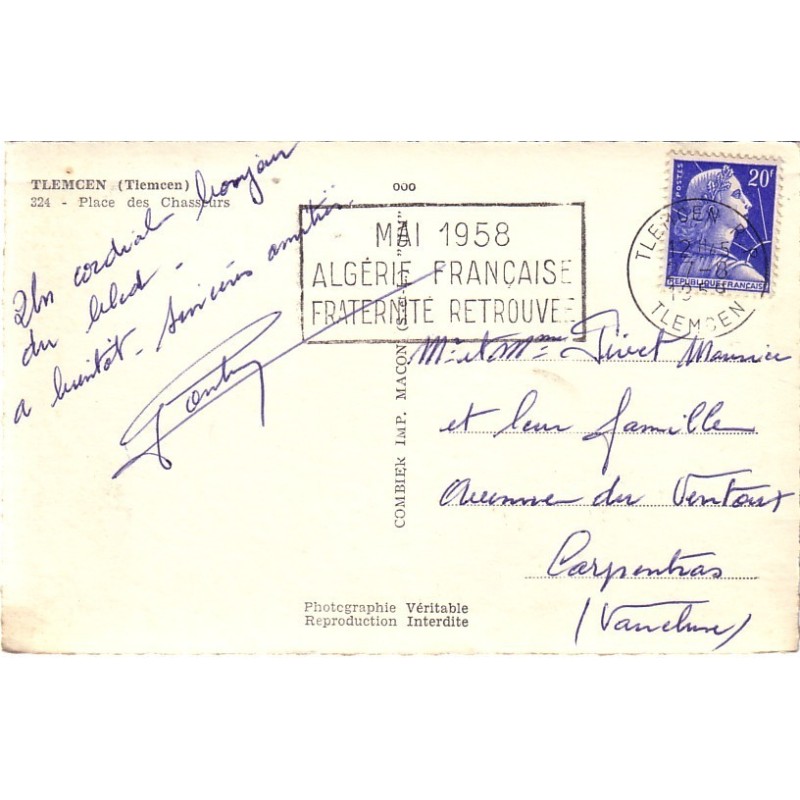 TLEMCEN (Tlemcen)
324 - Place des Chasseurs
Un cordial bonjour
du bled -
a bientôt - Sincères amitiés
ooo
COMBIER IMP. MACON (S.-et-L.) "CIM"
Photographie Véritable
Reproduction Interdite
MAI 1958
ALGÉRIE FRANÇAISE
FRATERNITÉ RETROUVÉE
POSTES
20F
REPUBLIQUE FRANÇAISE
TLEMCEN
7-8
1958
TLEMCEN
Mr et Mme Maurice
et leur famille
Avenue du Ventoux
Carpentras
(Vaucluse)